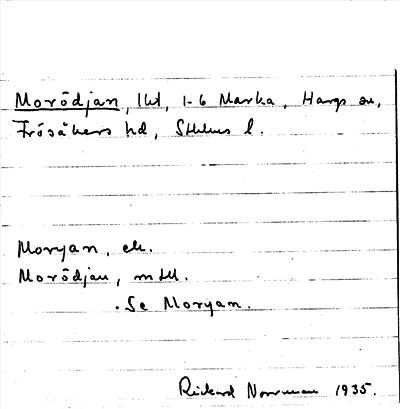 Morödjan, lht, 1-6 Marka, Hargs sn,
Frösåkers hd, Sthlms l.
Moryan, ek.
Morödjan, mtll.
. Se Moryan.
Rickard Norrman 1935.